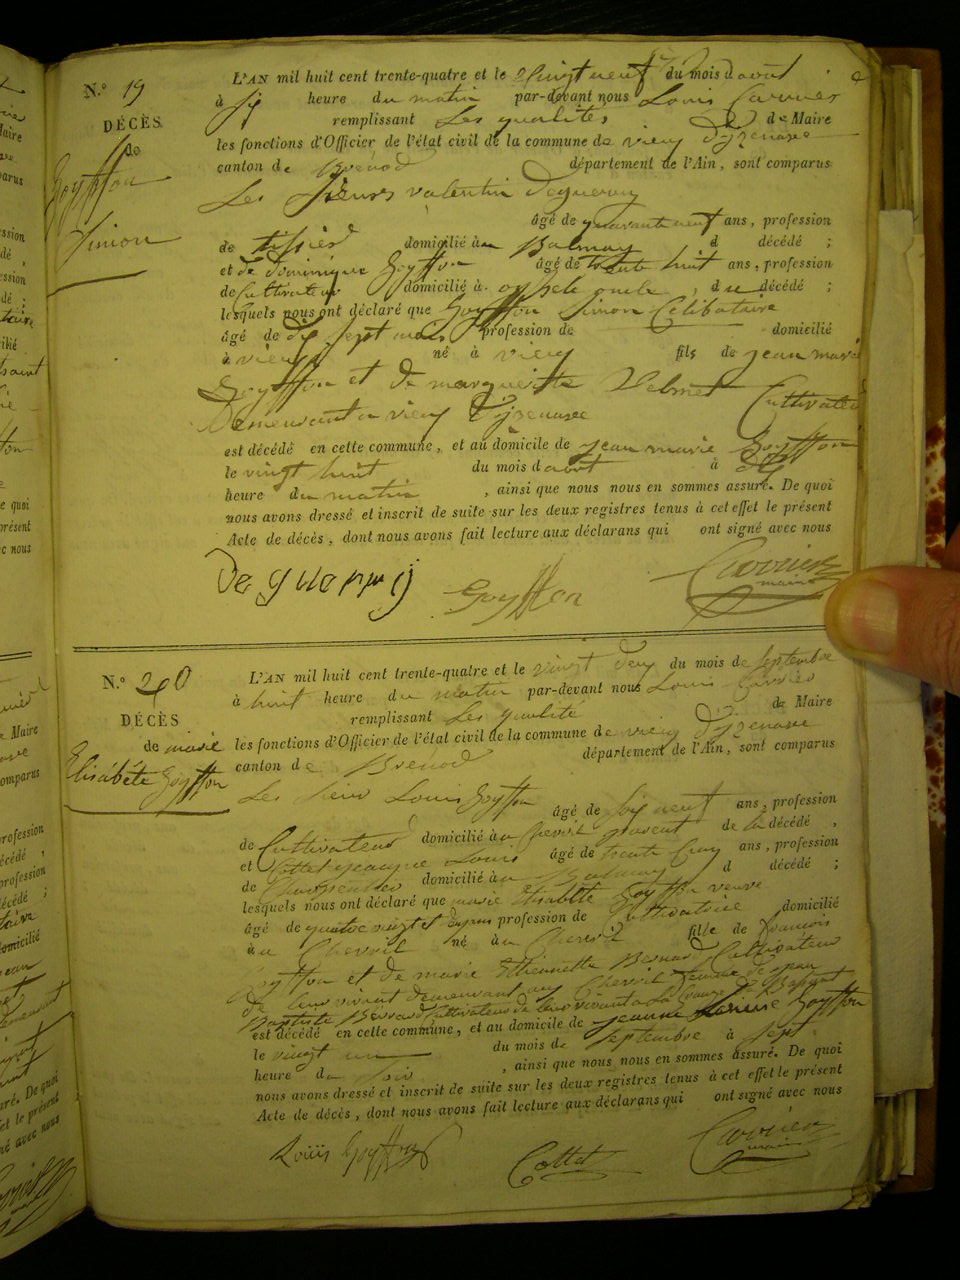 N.° 19
DÉCÈS
de
Goyffon
Simon
L'AN mil huit cent trente-quatre et le vingt neuf du mois d août
à heure du matin par-devant nous Louis Carrier
remplissant Les qualités de Maire
les fonctions d'Officier de l'état civil de la commune de vieu Dyzenave
canton de Brénod département de l'Ain, sont comparus
Les sieurs valentin Deguerry
âgé de quarante neuf ans, profession
de tissier domicilié à Balmay d décédé ;
et de dominique Goyffon âgé de trente huit ans, profession
de Cultivateur domicilié à , du décédé ;
lesquels nous ont déclaré que Goyffon Simon Célibataire
âgé de dix sept mois profession de domicilié
à vieu né à vieu fils de jean marie
Goyffon et de marguerite Cultivateur
Demeurant a vieu Dyzenave
est décédé en cette commune, et au domicile de jean marie Goyffon
le vingt huit du mois d août à dix
heure du matin , ainsi que nous nous en sommes assuré. De quoi
nous avons dressé et inscrit de suite sur les deux registres tenus à cet effet le présent
Acte de décès, dont nous avons fait lecture aux déclarans qui ont signé avec nous
Deguerry Goyffon Carrier
maire
N.° 20
DÉCÈS
de marie
Elisabéte Goyffon
L'AN mil huit cent trente-quatre et le vingt deux du mois de septembre
à huit heure du matin par-devant nous Louis Carrier
remplissant Les qualité de Maire
les fonctions d'Officier de l'état civil de la commune de vieu Dyzenave
canton de Brenod département de l'Ain, sont comparus
Les sieur Louis Goyffon âgé de neuf ans, profession
de Cultivateur domicilié à de la décédé ,
et Cottet jacque Louis âgé de trente cinq ans, profession
de Charpentier domicilié au Balmay d décédé ;
lesquels nous ont déclaré que marie Elisabéte Goyffon veuve
âgé de quatre vingt et profession de Cultivatrice domicilié
à né à fille de francois
Goyffon et de marie Ethiennette Bernard Cultivateur
de Leur vivant demeurant au femme de jean
Baptiste Bernard Cultivateur de leur vivant a La
est décédé en cette commune, et au domicile de jeanne Goyffon
le vingt un du mois de septembre à sept
heure du soir , ainsi que nous nous en sommes assuré. De quoi
nous avons dressé et inscrit de suite sur les deux registres tenus à cet effet le présent
Acte de décès, dont nous avons fait lecture aux déclarans qui ont signé avec nous
Louis Goyffon Cottet Carrier
maire